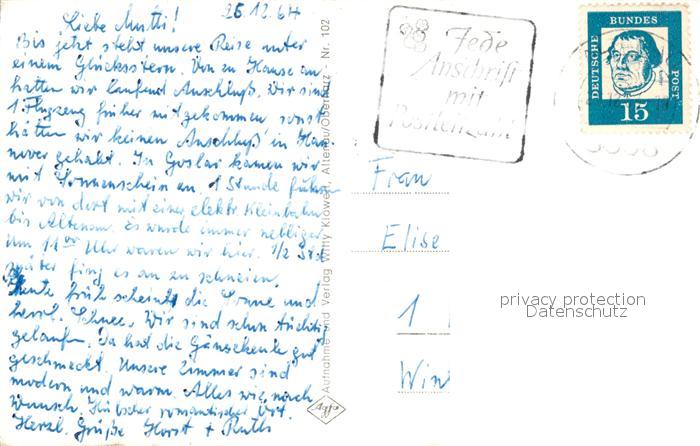 25.12.64
Liebe Mutti!
Bis jetzt steht unsere Reise unter
einem Glücksstern. Von zu Hause an
hatten wir laufend Anschluß. Wir sind
1 Flugzeug früher mitgekommen sonst
hätten wir keinen Anschluß in Han-
nover gehabt. In Goslar kamen wir
mit Sonnenschein an. 1 Stunde fuhren
wir von dort mit einer elektr. Kleinbahn
bis Altenau. Es wurde immer nebliger.
Um 11⁰⁰ Uhr waren wir hier. 1/2 Std
später fing es an zu schneien.
Heute früh scheint die Sonne und
herrl. Schnee. Wir sind schon tüchtig
gelaufen. Da hat die Gänsekeule gut
geschmeckt. Unsere Zimmer sind
modern und warm. Alles wie nach
Wunsch. Hübscher romantischer Ort.
Herzl. Grüße Horst + Ruth
Aufnahme und Verlag Willy Klowert, Altenau/Oberharz · Nr. 102
Agfa
Jede
Anschrift
mit
Postleitzahl
DEUTSCHE BUNDES POST
15
Frau
Elise
1
privacy protection
Datenschutz